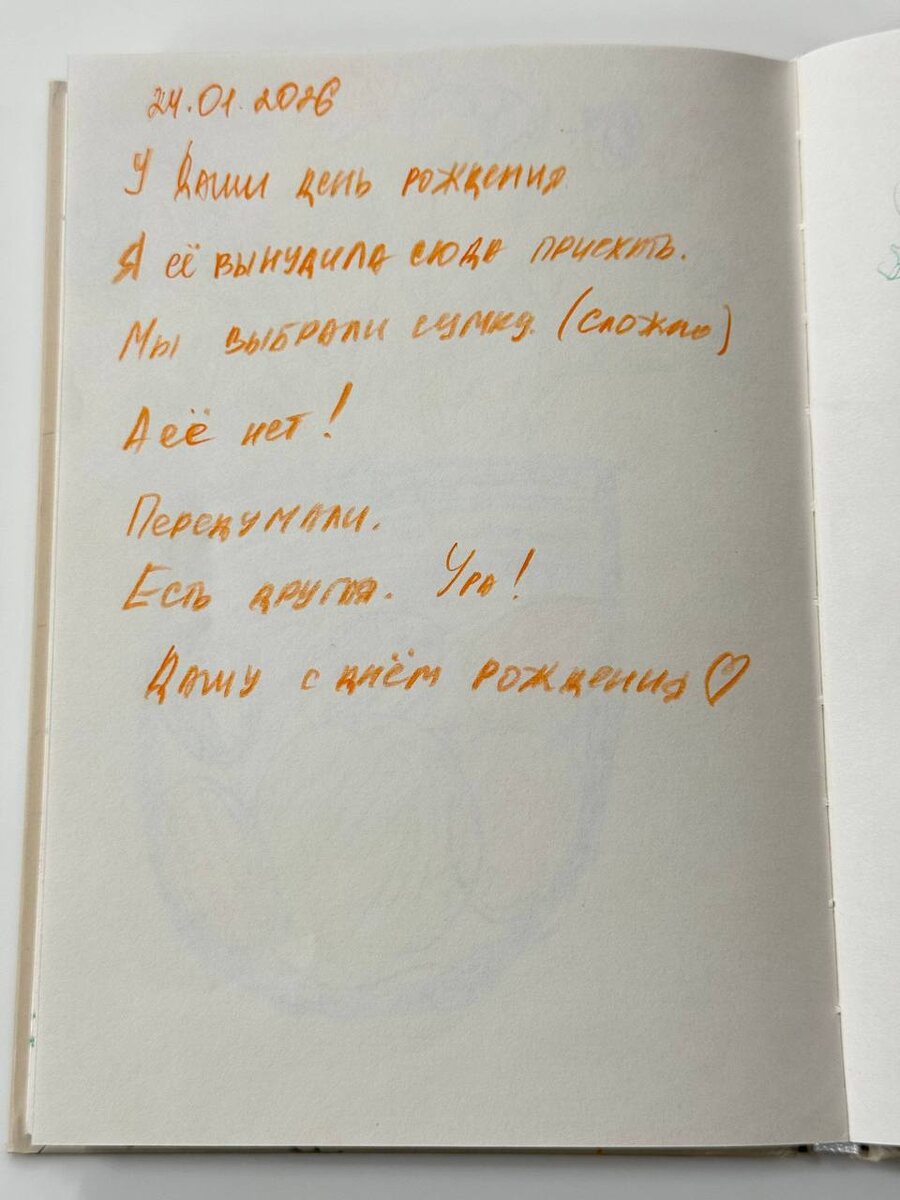 24.01.2026
У Даши день рождения
Я её вынудила сюда приехать.
Мы выбрали сумку. (сложно)
А её нет!
Передумали.
Есть другая. Ура!
Дашу с днём рождения♡